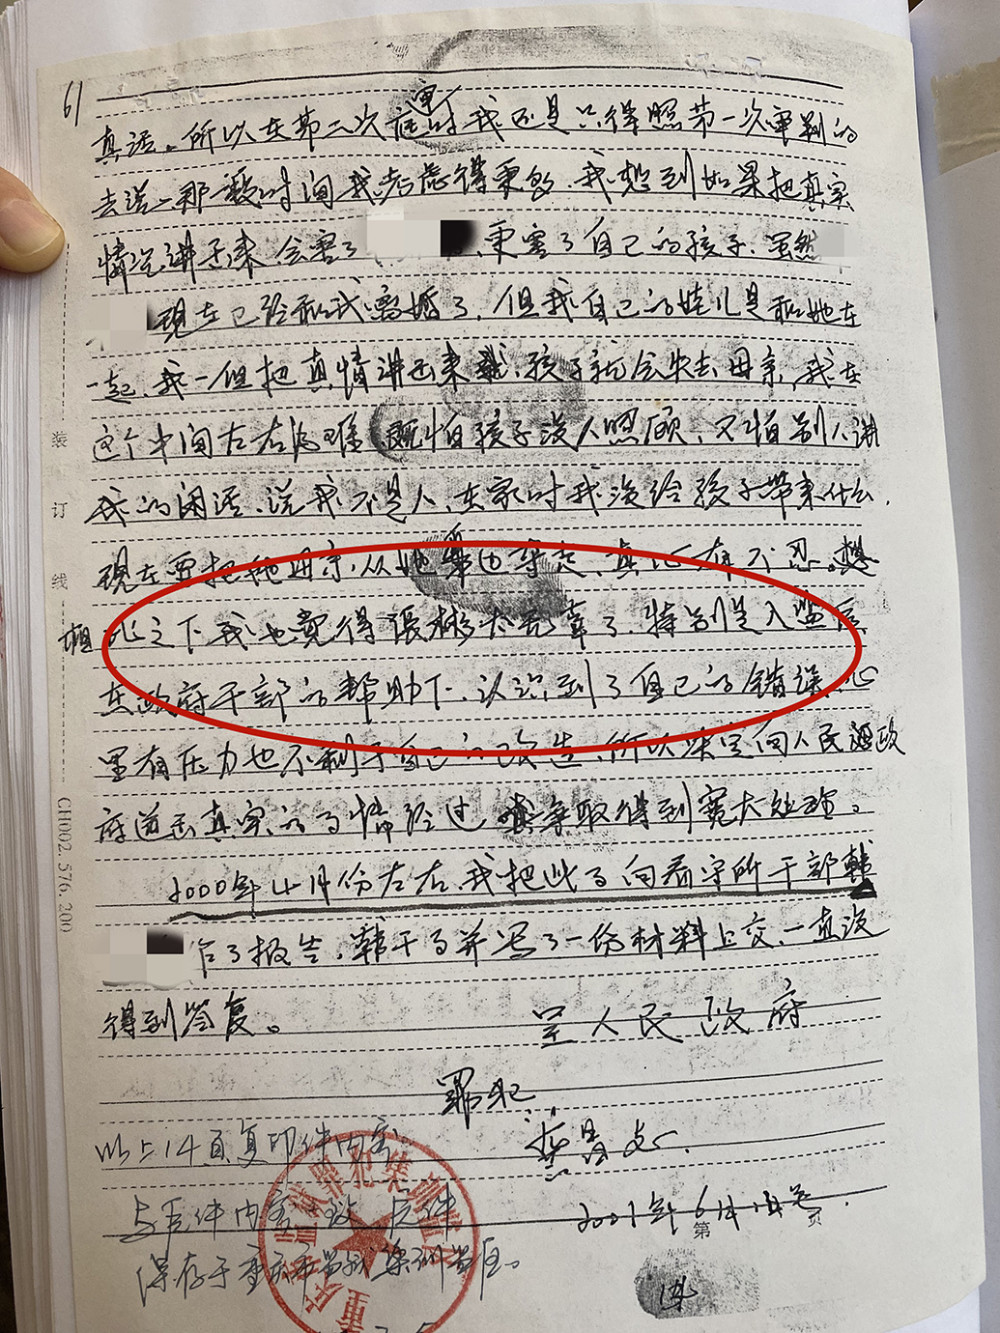 61
真话。所以在第二次庭审时我还是只得照第一次审判的
去说,那一段时间我考虑得更多,我想到如果把真实
情况讲出来,会害了 ,更害了自己的孩子,虽然
现在已经和我离婚了,但我自己的娃儿是和她在
一起,我一但把真情讲出来,孩子就会失去母亲,我在
这个中间左右为难,既怕孩子没人照顾,又怕别人讲
我的闲话,说我不是人,在家时我没给孩子带来什么,
现在要把她母亲从她身边夺走,真正有不忍。想
相比之下我也觉得张彬太无辜了,特别是入监后
在政府干部的帮助下,认识到了自己的错误,心
里有压力也不利于自己的改造,所以决定向人民政
府道出真实的事情经过,争取得到宽大处理。
2000年4月份左右,我把此事向看守所干部韩
作了报告,韩干事并写了一份材料上交,一直没
得到答复。
呈人民政府
罪犯
2001年6月
第 页
以上14页复印件内容
与原件内容一致,原件
保存于重庆市 监狱集训监区。
14
装
订
线
CH002.576.200